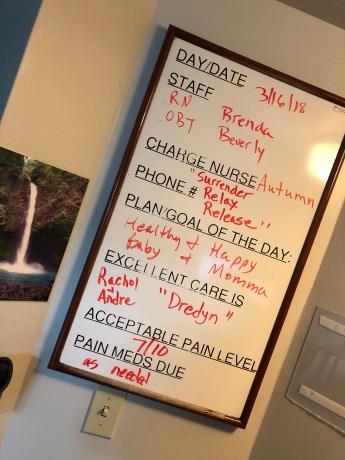 DAY/DATE 3/16/18
STAFF
RN Brenda
OBT Beverly
CHARGE NURSE Autumn
"Surrender
PHONE # Relax
Release"
PLAN/GOAL OF THE DAY:
Healthy & Happy
Baby & Momma
EXCELLENT CARE IS
Rachel "Dredyn"
& Andre
ACCEPTABLE PAIN LEVEL
7/10
PAIN MEDS DUE
as needed